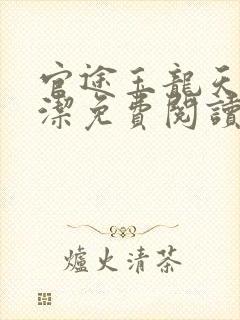 官途王龍天
潔免費閱讀
爐火清茶